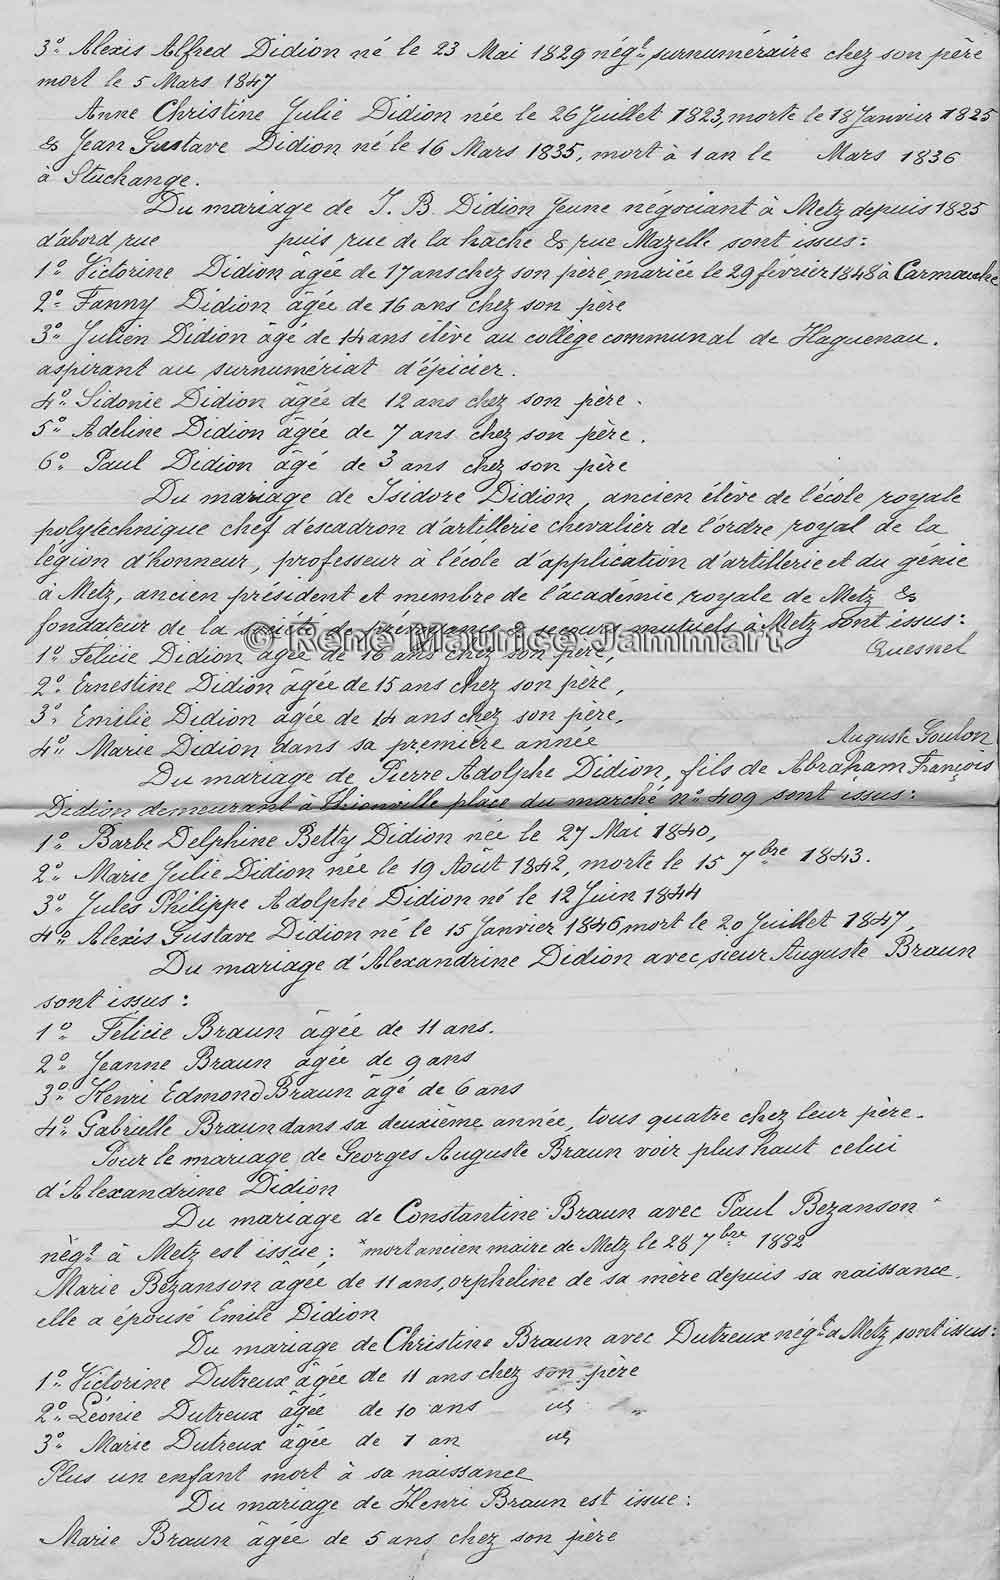 3º Alexis Alfred Didion né le 23 Mai 1829 négt, surnuméraire chez son père
mort le 5 Mars 1847
Anne Christine Julie Didion née le 26 Juillet 1823, morte le 18 Janvier 1825
& Jean Gustave Didion né le 16 Mars 1835, mort à 1 an le Mars 1836
à Stuckange.
Du mariage de J. B. Didion Jeune négociant à Metz depuis 1825
d'abord rue puis rue de la hache & rue Mazelle sont issus:
1º Victorine Didion âgée de 17 ans chez son père, mariée le 29 février 1848 à Carmouche
2º Fanny Didion âgée de 16 ans chez son père
3º Julien Didion âgé de 14 ans élève au collège communal de Haguenau.
aspirant au surnumériat d'épicier.
4º Sidonie Didion âgée de 12 ans chez son père.
5º Adeline Didion âgée de 7 ans chez son père.
6º Paul Didion âgé de 3 ans chez son père
Du mariage de Isidore Didion, ancien élève de l'école royale
polytechnique chef d'escadron d'artillerie chevalier de l'ordre royal de la
légion d'honneur, professeur à l'école d'application d'artillerie et du génie
à Metz, ancien président et membre de l'académie royale de Metz &
fondateur de la société de prévoyance & secours mutuels à Metz sont issus:
© René Maurice Jammart
1º Félicie Didion âgée de 16 ans chez son père, Quesnel
2º Ernestine Didion âgée de 15 ans chez son père,
3º Emilie Didion âgée de 14 ans chez son père,
4º Marie Didion dans sa première année Auguste Goulon
Du mariage de Pierre Adolphe Didion, fils de Abraham François
Didion demeurant à Thionville place du marché nº 409 sont issus:
1º Barbe Delphine Betty Didion née le 27 Mai 1840,
2º Marie Julie Didion née le 19 Août 1842, morte le 15 7bre 1843.
3º Jules Philippe Adolphe Didion né le 12 Juin 1844
4º Alexis Gustave Didion né le 15 Janvier 1846 mort le 20 Juillet 1847,
Du mariage d'Alexandrine Didion avec sieur Auguste Braun
sont issus:
1º Félicie Braun âgée de 11 ans.
2º Jeanne Braun âgée de 9 ans
3º Henri Edmond Braun âgé de 6 ans
4º Gabrielle Braun dans sa deuxième année, tous quatre chez leur père.
Pour le mariage de Georges Auguste Braun voir plus haut celui
d'Alexandrine Didion
Du mariage de Constantine Braun avec Paul Bezanson *
négt à Metz est issue; * mort ancien maire de Metz le 28 7bre 1882
Marie Bezanson âgée de 11 ans, orpheline de sa mère depuis sa naissance.
elle a épousé Emile Didion
Du mariage de Christine Braun avec Dutreux négt à Metz, sont issus:
1º Victorine Dutreux âgée de 11 ans chez son père
2º Léonie Dutreux âgée de 10 ans
3º Marie Dutreux âgée de 1 an
Plus un enfant mort à sa naissance
Du mariage de Henri Braun est issue:
Marie Braun âgée de 5 ans chez son père